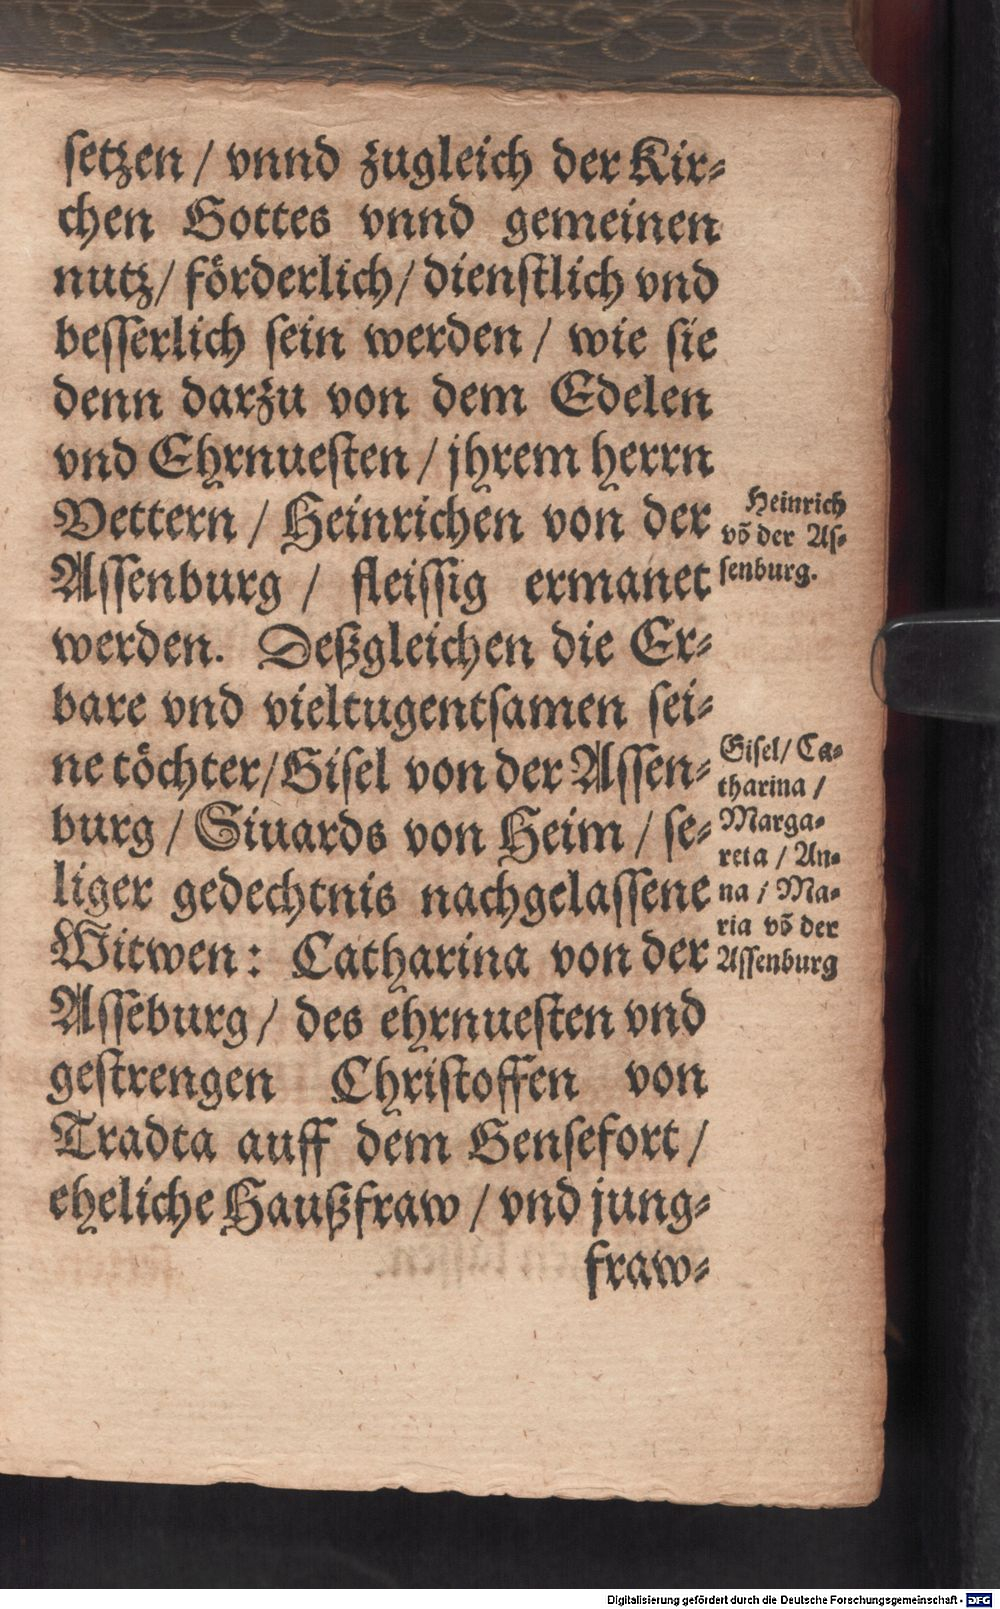 setzen / vnnd zugleich der Kir⸗
chen Gottes vnnd gemeinen
nutz / förderlich / dienstlich vnd
besserlich sein werden / wie sie
denn darzu von dem Edelen
vnd Ehrnuesten / jhrem herrn
Vettern / Heinrichen von der
Assenburg / fleissig ermanet
werden. Deßgleichen die Er⸗
bare vnd vieltugentsamen sei⸗
ne töchter / Gisel von der Assen⸗
burg / Siuards von Heim / se⸗
liger gedechtnis nachgelassene
Witwen: Catharina von der
Asseburg / des ehrnuesten vnd
gestrengen Christoffen von
Tradta auff dem Gensefort /
eheliche Haußfraw / vnd jung⸗
fraw⸗
Heinrich
võ der As⸗
senburg.
Gisel / Ca⸗
tharina /
Marga⸗
reta / An⸗
na / Ma⸗
ria võ der
Assenburg
Digitalisierung gefördert durch die Deutsche Forschungsgemeinschaft - DFG